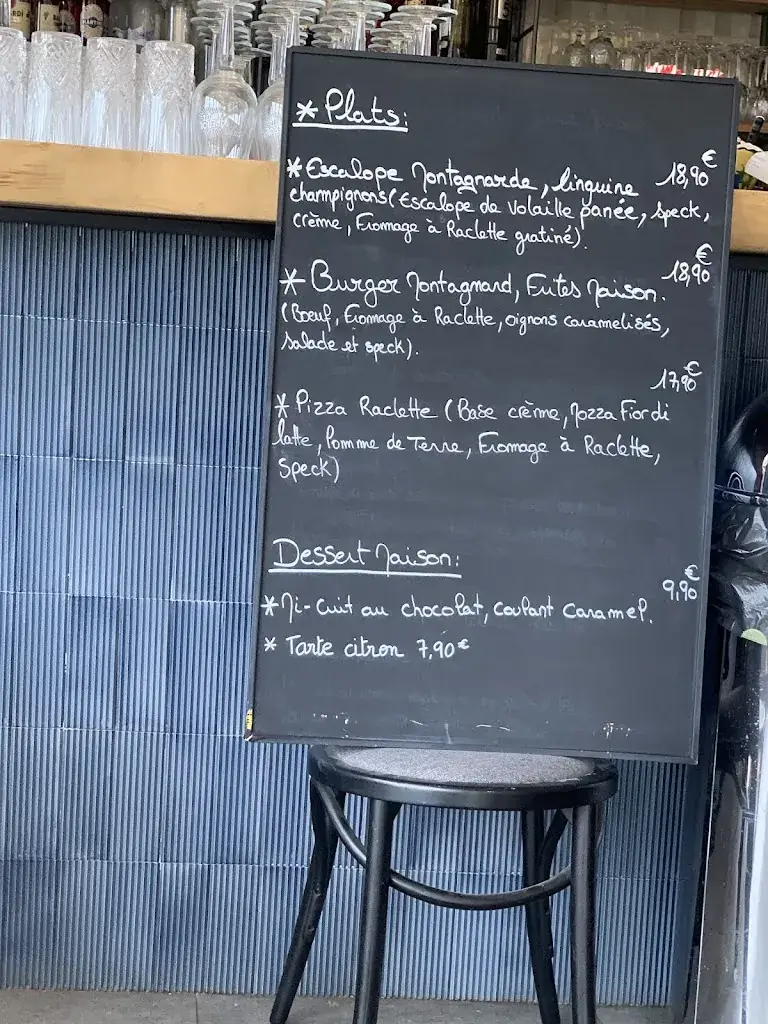 * Plats:
* Escalope Montagnarde, linguine 18,90€
champignons (Escalope de volaille panée, speck,
crème, Fromage à Raclette gratiné).
* Burger Montagnard, Frites Maison. 18,90€
(Boeuf, Fromage à Raclette, oignons caramelisés,
salade et speck).
17,90€
* Pizza Raclette (Base crème, Mozza Fior di
latte, Pomme de Terre, Fromage à Raclette,
Speck)
Dessert Maison:
9,90€
* Mi-cuit au chocolat, coulant caramel.
* Tarte citron 7,90€